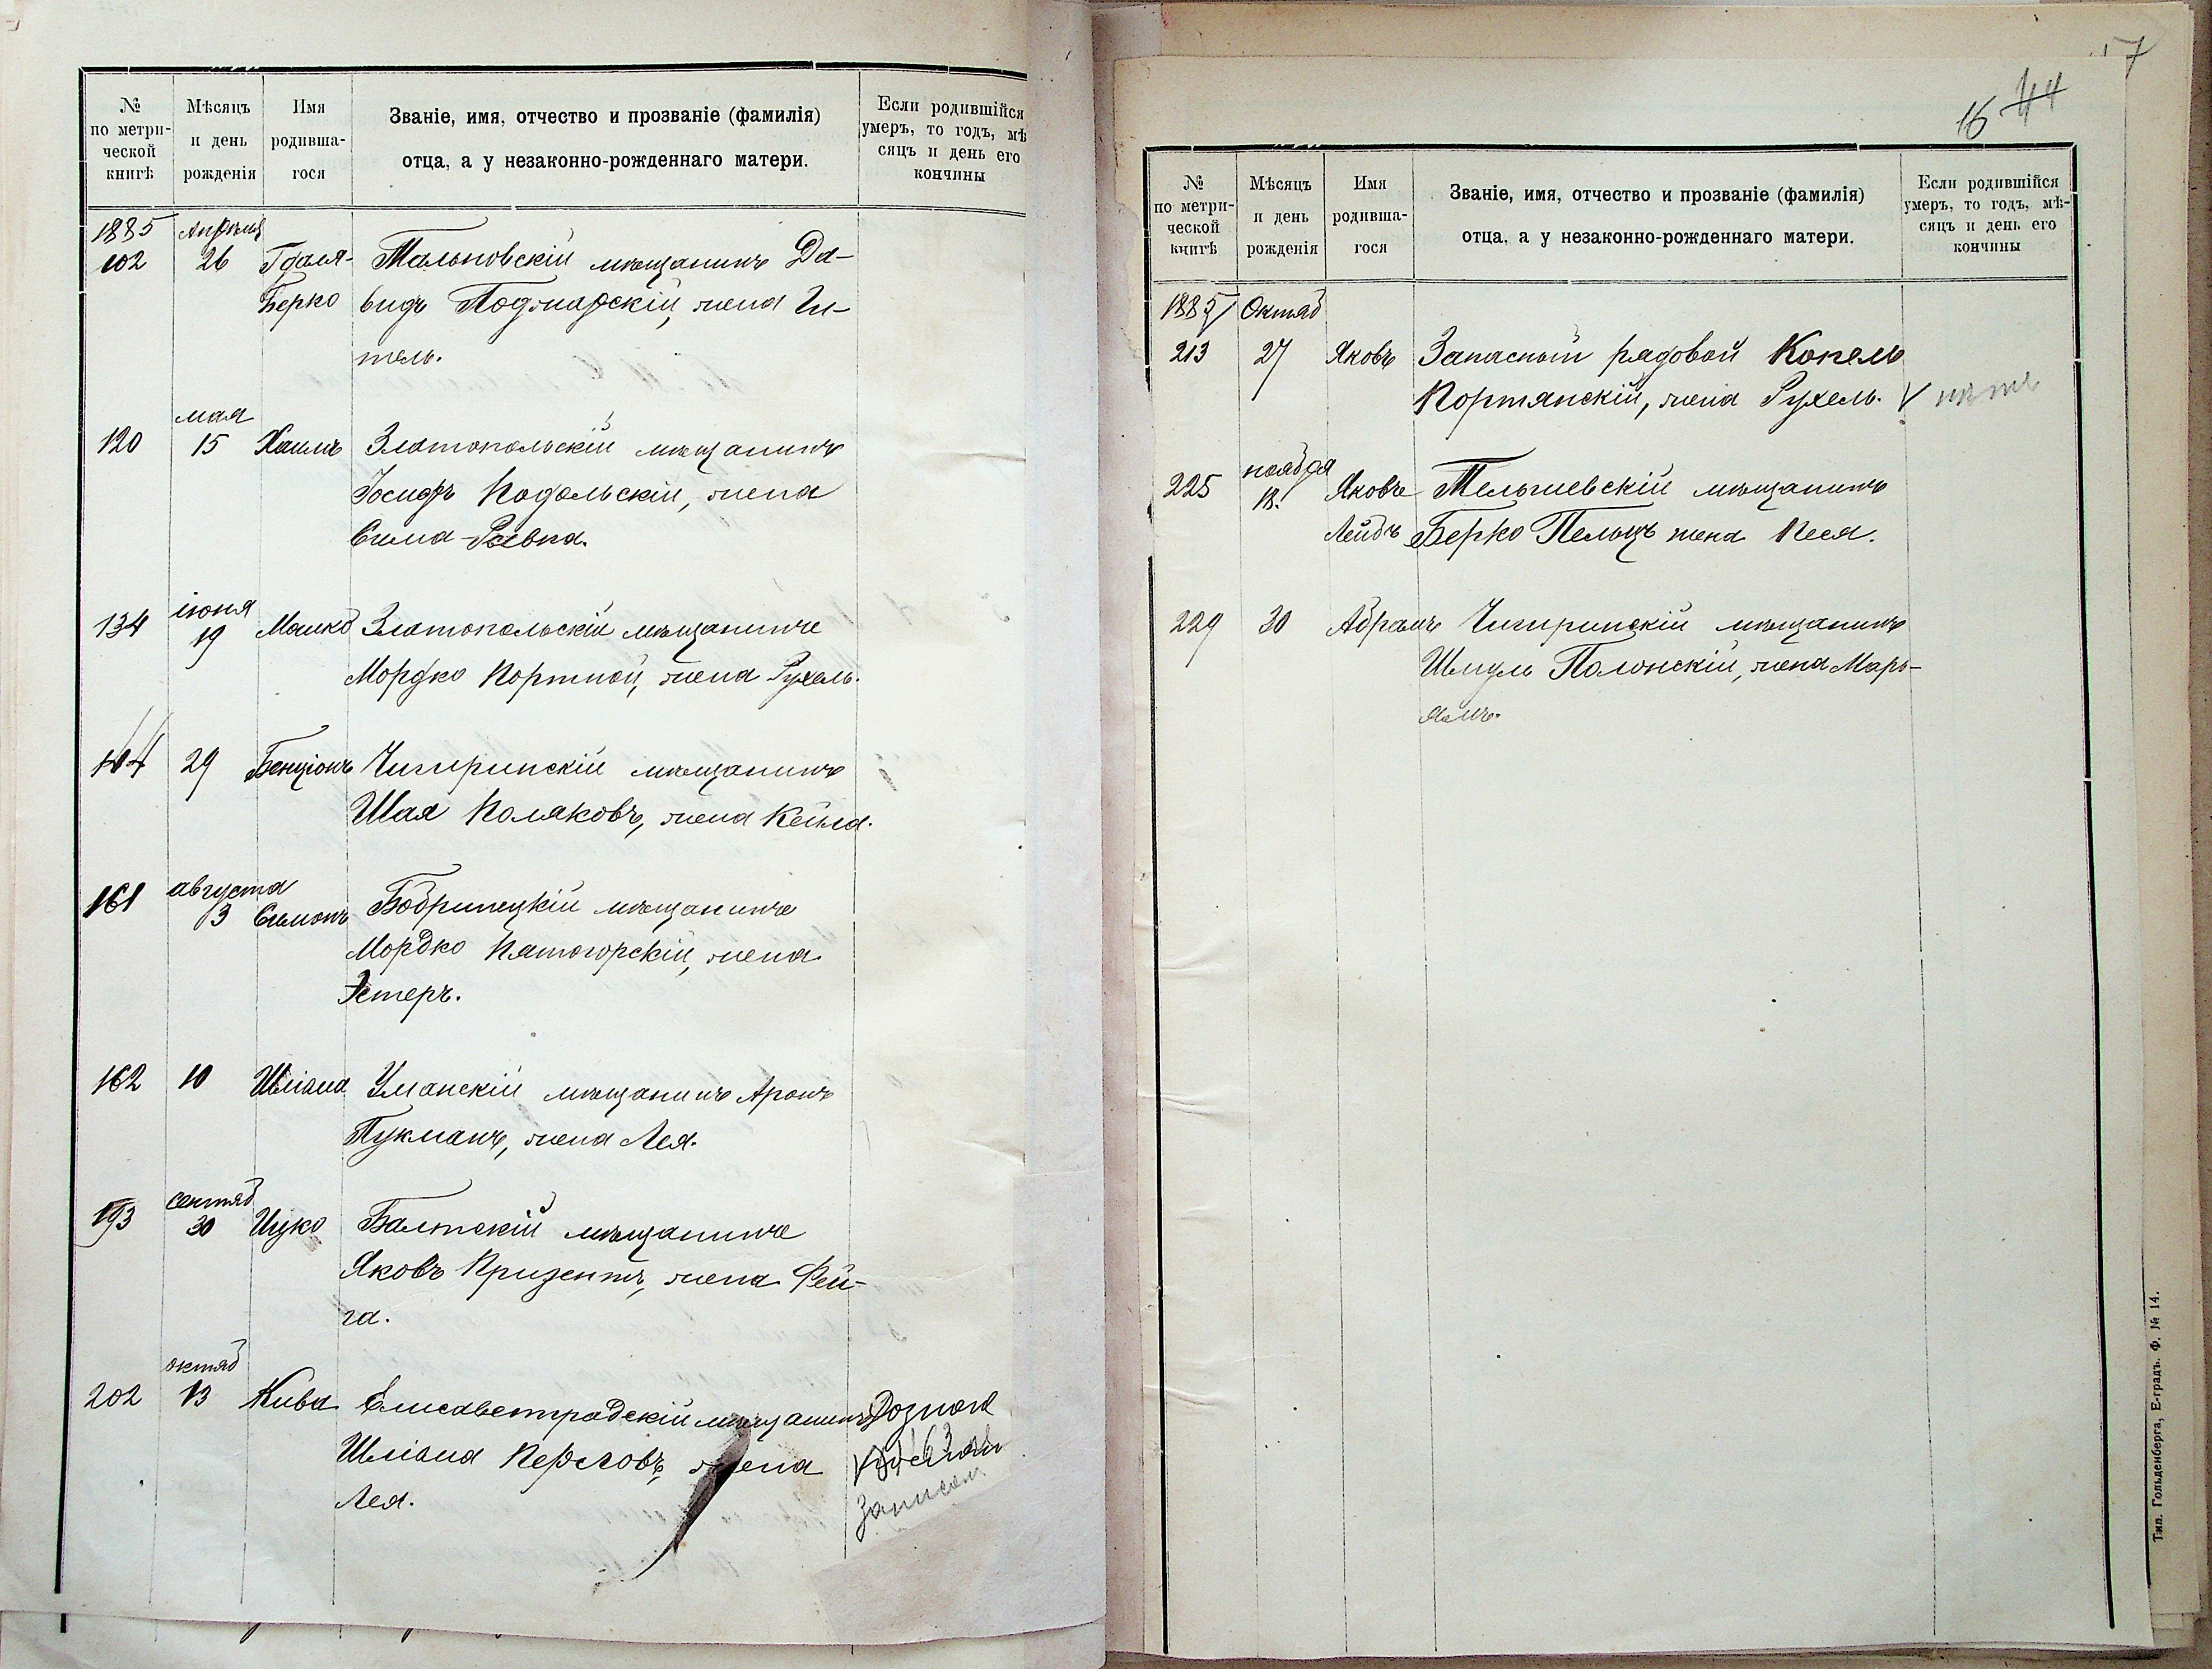 № по метрической книгѣ
Мѣсяцъ и день рожденія
Имя родившагося
Званіе, имя, отчество и прозваніе (фамилія)
отца, а у незаконно-рожденнаго матери.
Если родившійся
умеръ, то годъ, мѣ
сяцъ и день его
кончины
1885 Апрѣля
102 26 Гдаля- Тальновскій мѣщанинъ Да-
Берко видъ Подгиарскій, жена Ги-
тель.
мая
120 15 Хаимъ Златопольскій мѣщанинъ
Іосифъ Подольскій, жена
Сима-Ривка.
іюня
134 19 Мошко Златопольскій мѣщанинъ
Мордко Портной, жена Рухель.
144 29 Бенціонъ Чигиринскій мѣщанинъ
Шая Поляковъ, жена Кейла.
августа
161 3 Симонъ Бобринецкій мѣщанинъ
Мордко Пятогорскій, жена
Эстеръ.
162 10 Шліома Уманскій мѣщанинъ Аронъ
Пукманъ, жена Лея.
сентяб
193 30 Ицко Балтскій мѣщанинъ
Яковъ Призентъ, жена Фей-
га.
октяб
202 13 Кива Елисаветградскій мѣщанинъ
Шліома Перловъ, жена
Лея.
записан
16 44
№
по метри-
ческой
книгѣ
Мѣсяцъ
и день
рожденія
Имя
родивша-
гося
Званіе, имя, отчество и прозваніе (фамилія)
отца, а у незаконно-рожденнаго матери.
Если родившійся
умеръ, то годъ, мѣ-
сяцъ и день его
кончины
1885 Октяб
213 27 Яковъ Запасный рядовой Копель
Портянскій, жена Рухель.
ноября
225 18. Яковъ Тельшевскій мѣщанинъ
Лейбъ Берко Пельцъ жена Песя.
229 30 Абрамъ Чигиринскій мѣщанинъ
Шмуль Полонскій, жена Марь-
ямъ.
Тип. Гольденберга, Е-градъ. Ф. № 14.